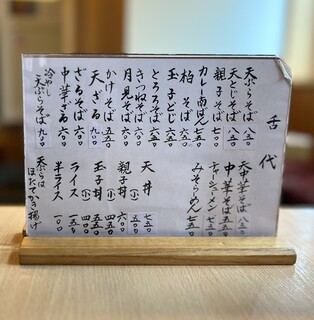 舌代
天ぷらそば 八五〇
天とじそば 八五〇
親子そば 七五〇
カレー南ばん 七五〇
柏そば 六五〇
玉子とじ 六五〇
とろろそば 六五〇
きつねそば 六〇〇
月見そば 六〇〇
かけそば 五五〇
天ざる 九〇〇
ざるそば 六〇〇
中華ざる 六〇〇
冷やし
天ぷらそば 九〇〇
天中華そば 八五〇
中華そば 五五〇
チャーシューメン 七五〇
みそらめん 七五〇
天丼 七五〇
(小) 五五〇
親子丼 六〇〇
(小) 四五〇
玉子丼 五五〇
(小) 四〇〇
ライス 二〇〇
半ライス 一〇〇
天ぷらは
ほたてかき揚げ